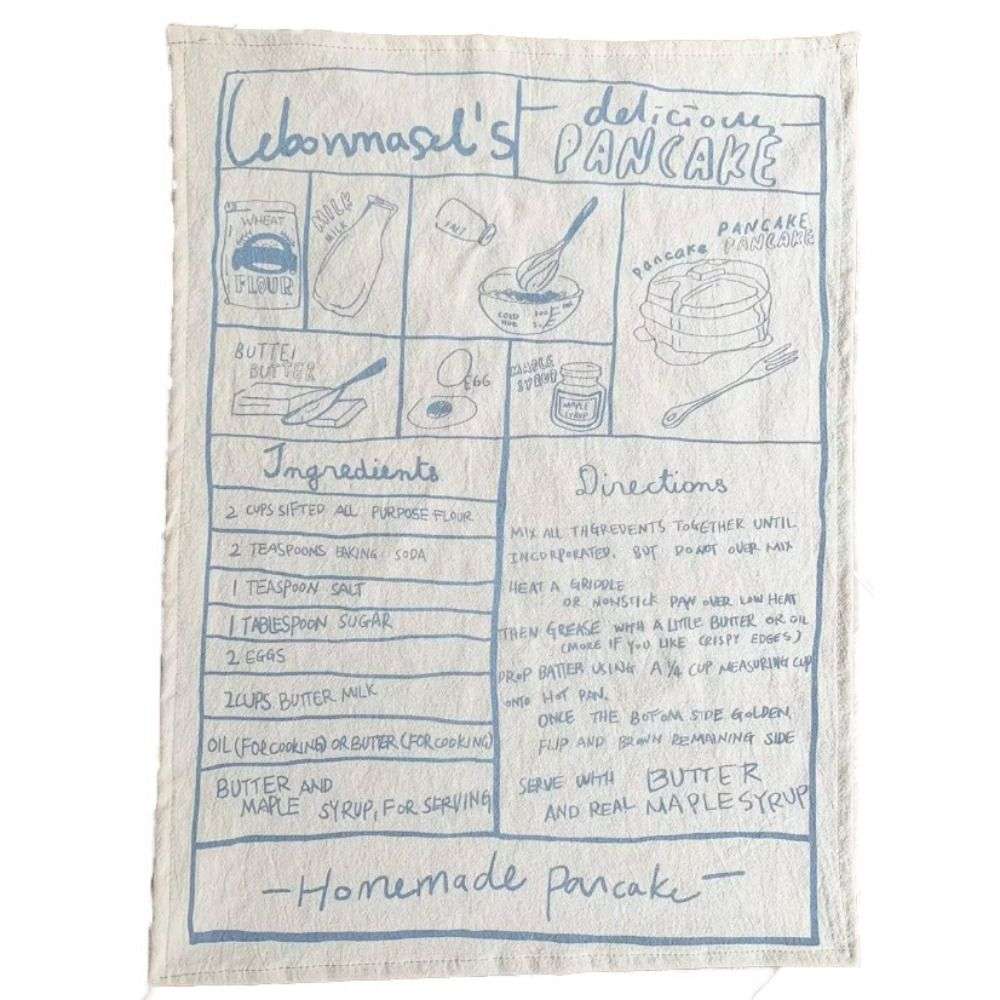 Lebonmasel's
delicious
PANCAKE
WHEAT
FLOUR
MILK
MILK
SALT
COLD
PANCAKE
PANCAKE
pancake
BUTTE
BUTTER
EGG
MAPLE
SYRUP
MAPLE
SYRUP
Ingredients
2 CUPS SIFTED ALL PURPOSE FLOUR
2 TEASPOONS BAKING SODA
1 TEASPOON SALT
1 TABLESPOON SUGAR
2 EGGS
2 CUPS BUTTER MILK
OIL (FOR COOKING) OR BUTTER (FOR COOKING)
BUTTER AND
MAPLE SYRUP, FOR SERVING
Directions
MIX ALL THGREDENTS TOGETHER UNTIL
INCORPORATED. BUT DO NOT OVER MIX
HEAT A GRIDDLE
OR NONSTICK PAN OVER LOW HEAT
THEN GREASE WITH A LITTLE BUTTER OR OIL
(MORE IF YOU LIKE CRISPY EDGES)
DROP BATTER USING A ¼ CUP MEASURING CUP
ONTO HOT PAN.
ONCE THE BOTOM SIDE GOLDEN,
FLIP AND BROWN REMAINING SIDE
SERVE WITH BUTTER
AND REAL MAPLE SYRUP
- Homemade pancake -